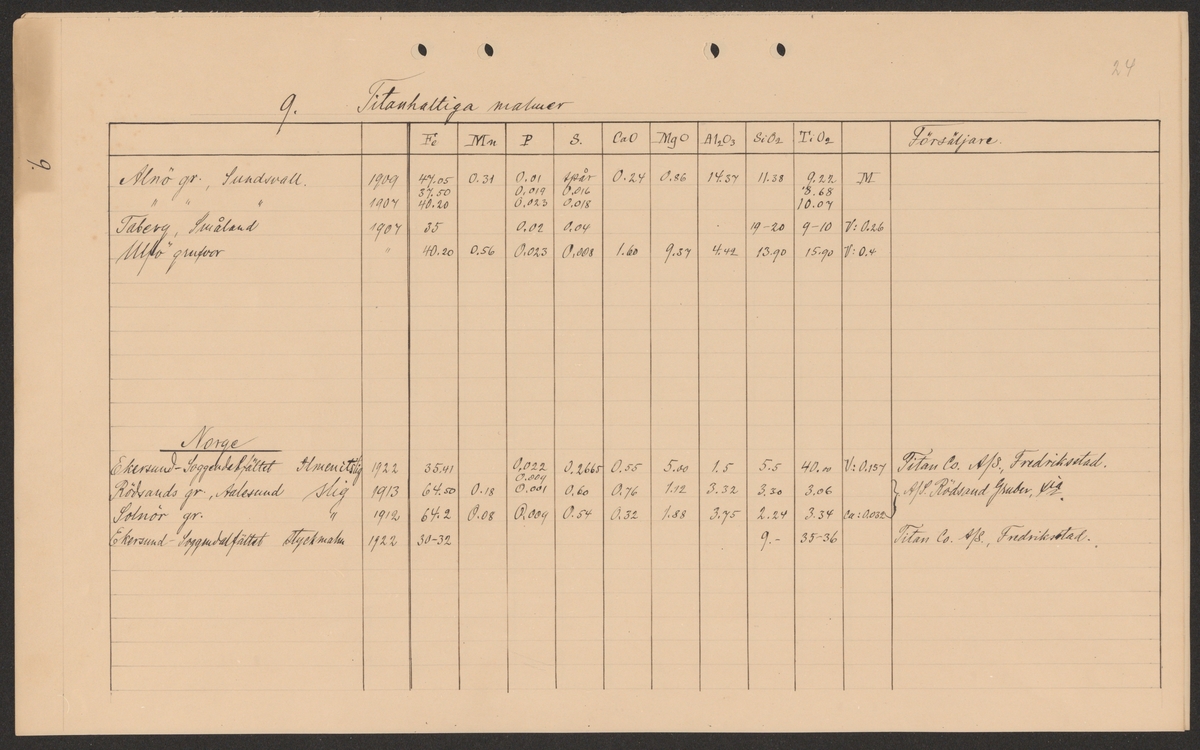 24
9. Titanhaltiga malmer
9.
Fe Mn P S. CaO MgO Al2O3 SiO2 TiO2 Försäljare.
Alnö gr., Sundsvall. 1909 47.05 0.31 0.01 spår 0.24 0.86 14.37 11.38 9.22 M
37.50 0.019 0.016 8.68
" " " 1907 40.20 0.023 0.018 10.07
Taberg, Småland 1907 35 0.02 0.04 19-20 9-10 V: 0.26
Ulfö grufvor " 40.20 0.56 0.023 0.008 1.60 9.37 4.42 13.90 15.90 V: 0.4
Norge
Ekersund-Soggendalfältet Ilmenitslig 1922 35.41 0.022 0.2665 0.55 5.00 1.5 5.5 40.00 V: 0.157 Titan Co. A/S., Fredriksstad.
0.009
Rödsands gr., Aalesund slig 1913 64.50 0.18 0.001 0.60 0.76 1.12 3.32 3.30 3.06 A/S. Rödsand Gruber,
Solnör gr. " 1912 64.2 0.08 0.009 0.54 0.32 1.88 3.75 2.24 3.34 Cu: 0.032
Ekersund-Soggendalfältet Styckmalm 1922 30-32 9.- 35-36 Titan Co. A/S., Fredriksstad.